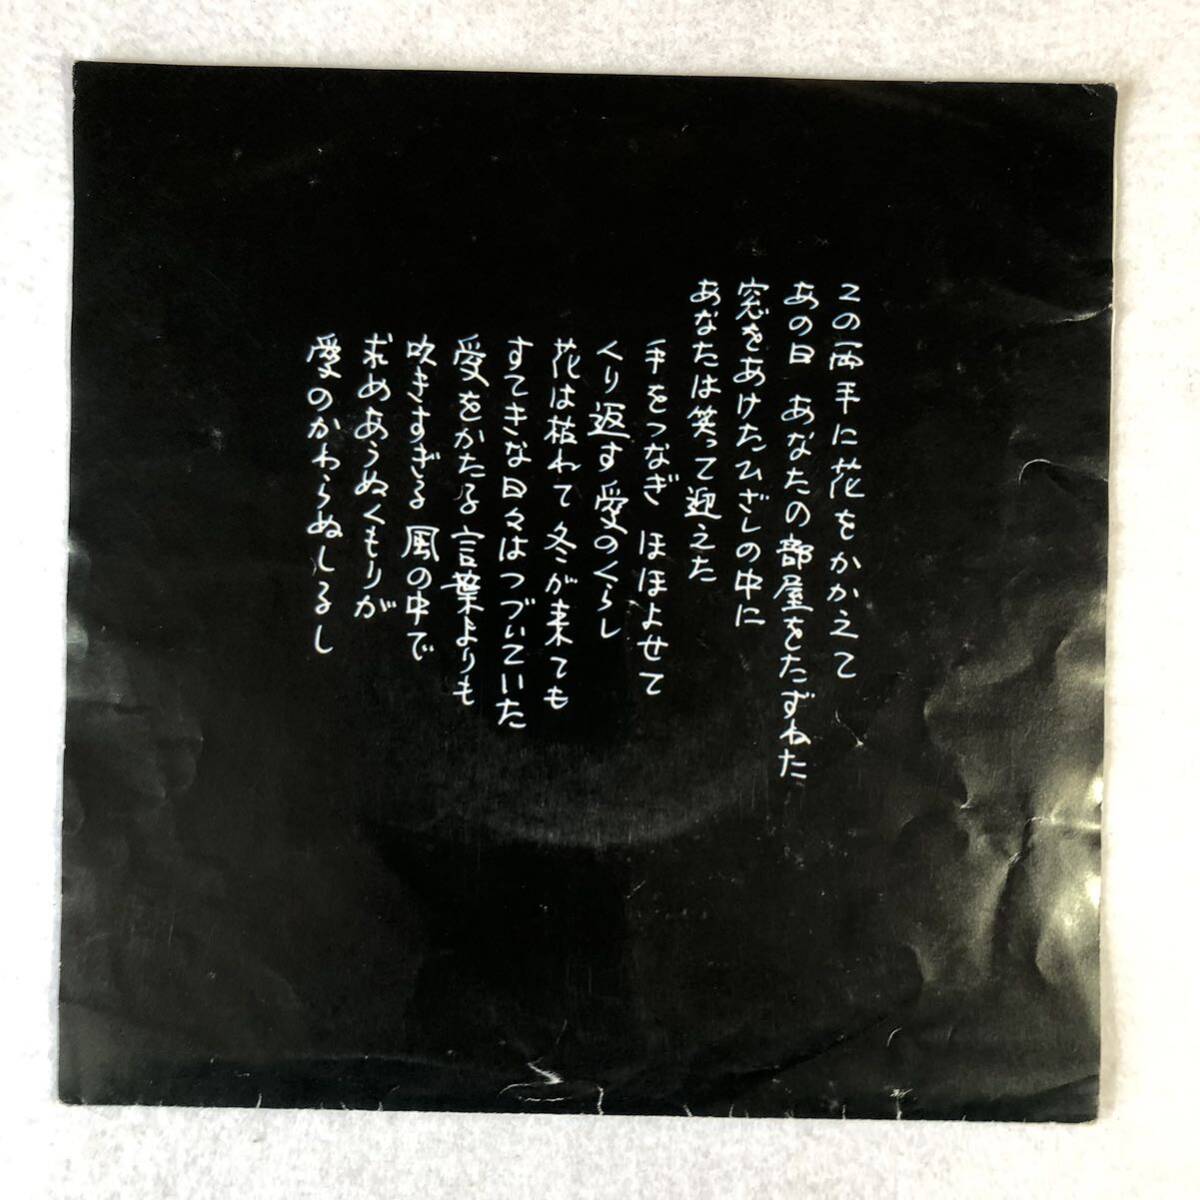 この両手に花をかかえて
あの日 あなたの部屋をたずねた
窓をあけたひざしの中に
あなたは笑って迎えた
手をつなぎ ほほよせて
くり返す愛のくらし
花は枯れて冬が来ても
すてきな日々はつづいていた
愛をかたる言葉よりも
吹きすぎる風の中で
求めあうぬくもりが
愛のかわらぬしるし